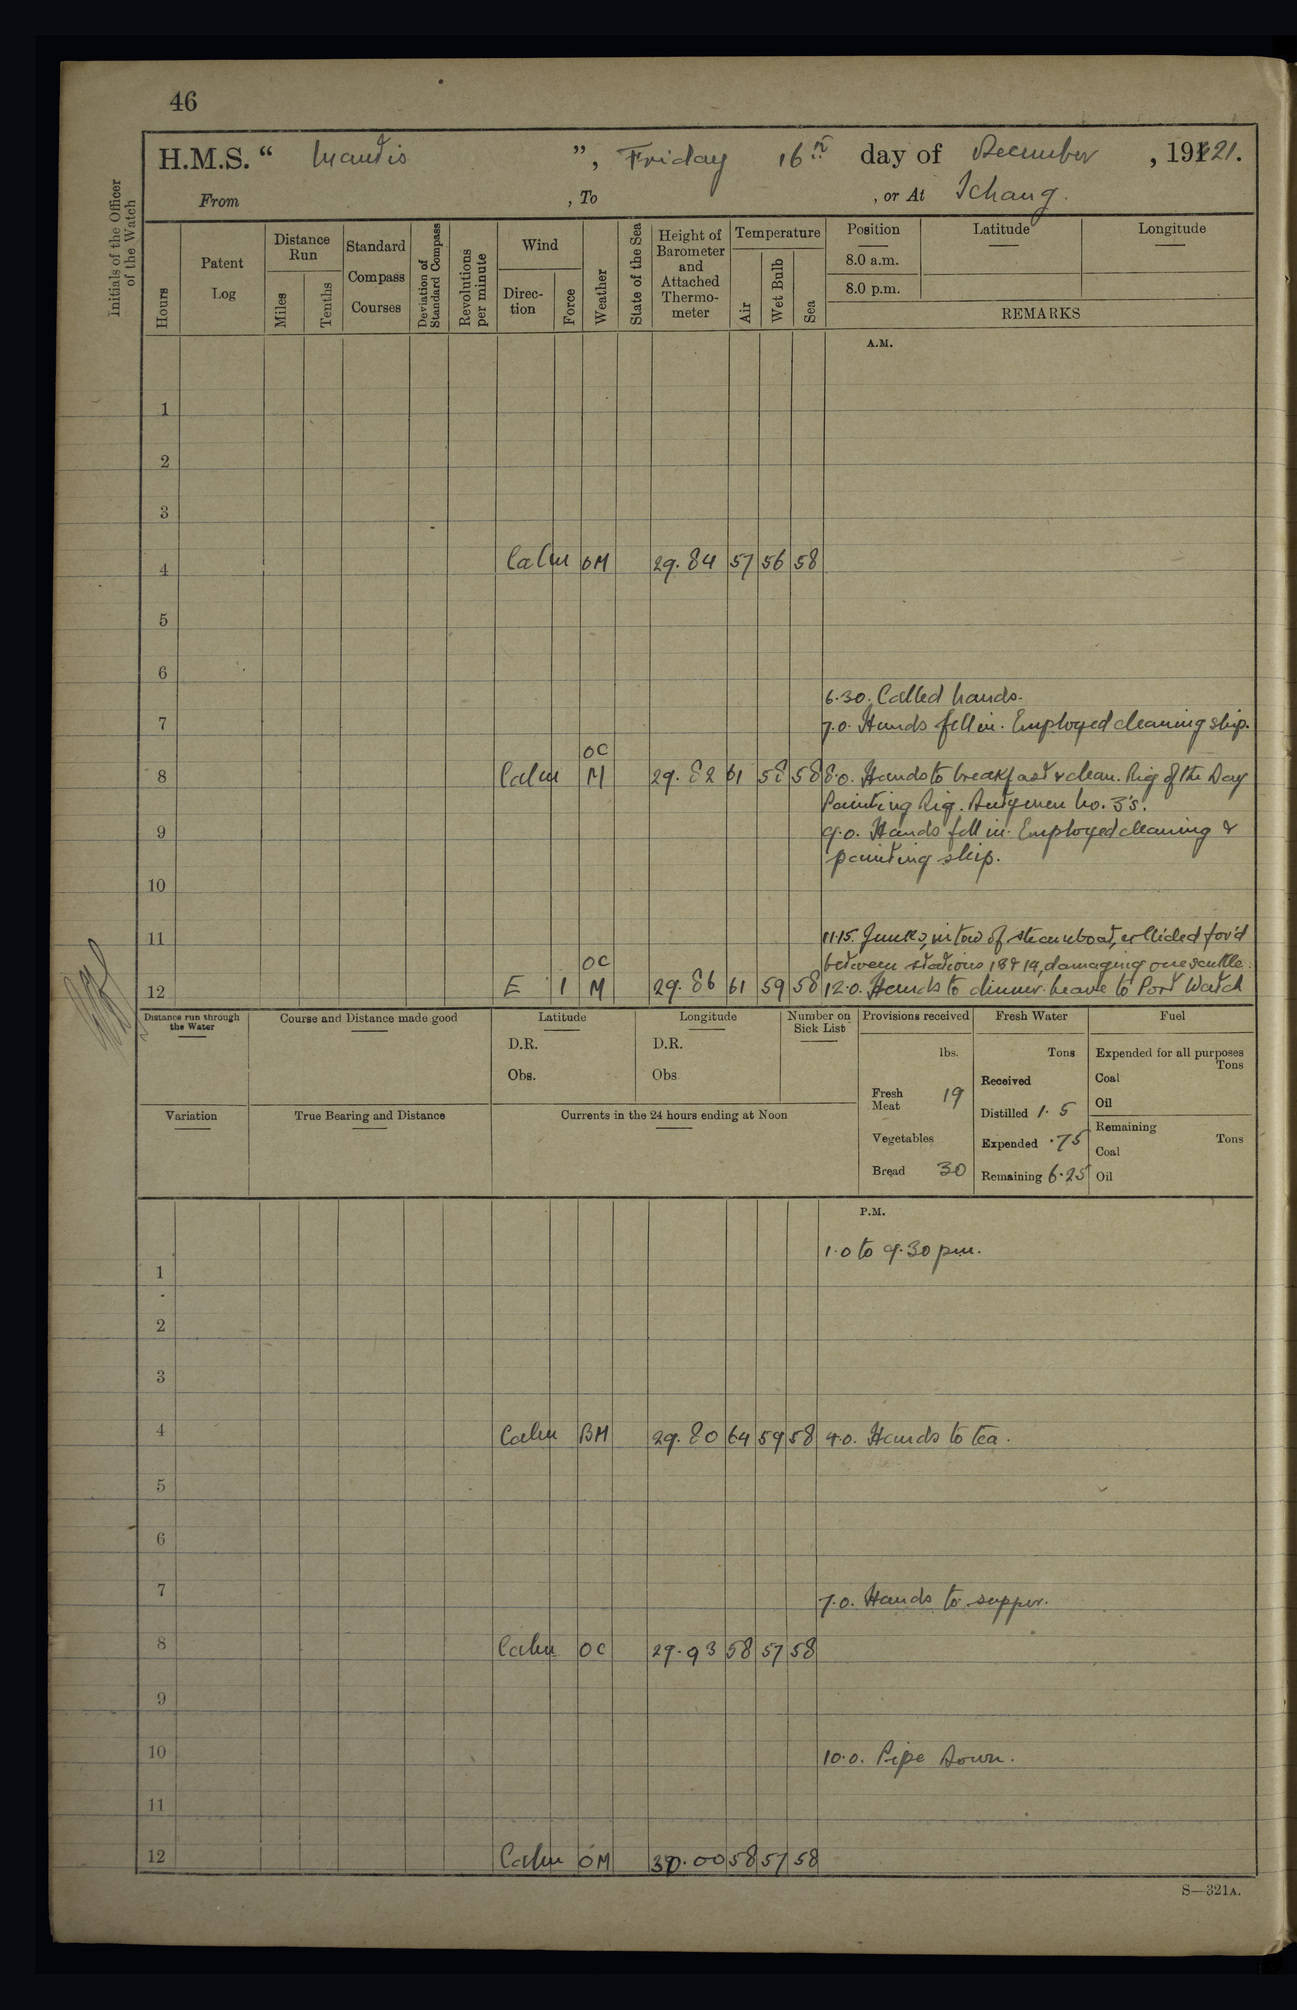 46
H.M.S. “ Mantis ”, Friday 16th day of December , 1921.
From , To , or At Ichang.
Initials of the Officer of the Watch
Hours
Patent Log
Distance Run
Miles
Tenths
Standard Compass Courses
Deviation of Standard Compass
Revolutions per minute
Wind
Direction
Force
Weather
State of the Sea
Height of Barometer and Attached Thermometer
Temperature
Air
Wet Bulb
Sea
Position
8.0 a.m.
8.0 p.m.
Latitude
Longitude
REMARKS
A.M.
1
2
3
4 Calm OM 29.84 57 56 58
5
6
6.30. Called hands.
7 7.0. Hands fell in. Employed cleaning ship.
OC
8 Calm M 29.82 61 58 58 8.0. Hands to breakfast & clean. Rig of the Day
Painting Rig. Dutymen No. 3's.
9 9.0. Hands fell in. Employed cleaning &
painting ship.
10
11 11.15. Junks, in tow of steamboat, collided for'd
OC between stations 18 & 19, damaging one scuttle.
12 E 1 M 29.86 61 59 58 12.0. Hands to dinner. Leave to Port Watch
Distance run through the Water
Course and Distance made good
Latitude
D.R.
Obs.
Longitude
D.R.
Obs
Number on Sick List
Provisions received
lbs.
Fresh Meat 19
Vegetables
Bread 30
Fresh Water
Tons
Received
Distilled 1.5
Expended .75
Remaining 6.25
Fuel
Expended for all purposes
Tons
Coal
Oil
Remaining
Tons
Coal
Oil
Variation
True Bearing and Distance
Currents in the 24 hours ending at Noon
P.M.
1.0 to 9.30 pm.
1
2
3
4 Calm BM 29.80 64 59 58 4.0. Hands to tea.
5
6
7 7.0. Hands to supper.
8 Calm OC 29.93 58 57 58
9
10 10.0. Pipe Down.
11
12 Calm OM 30.00 58 57 58
S—321A.